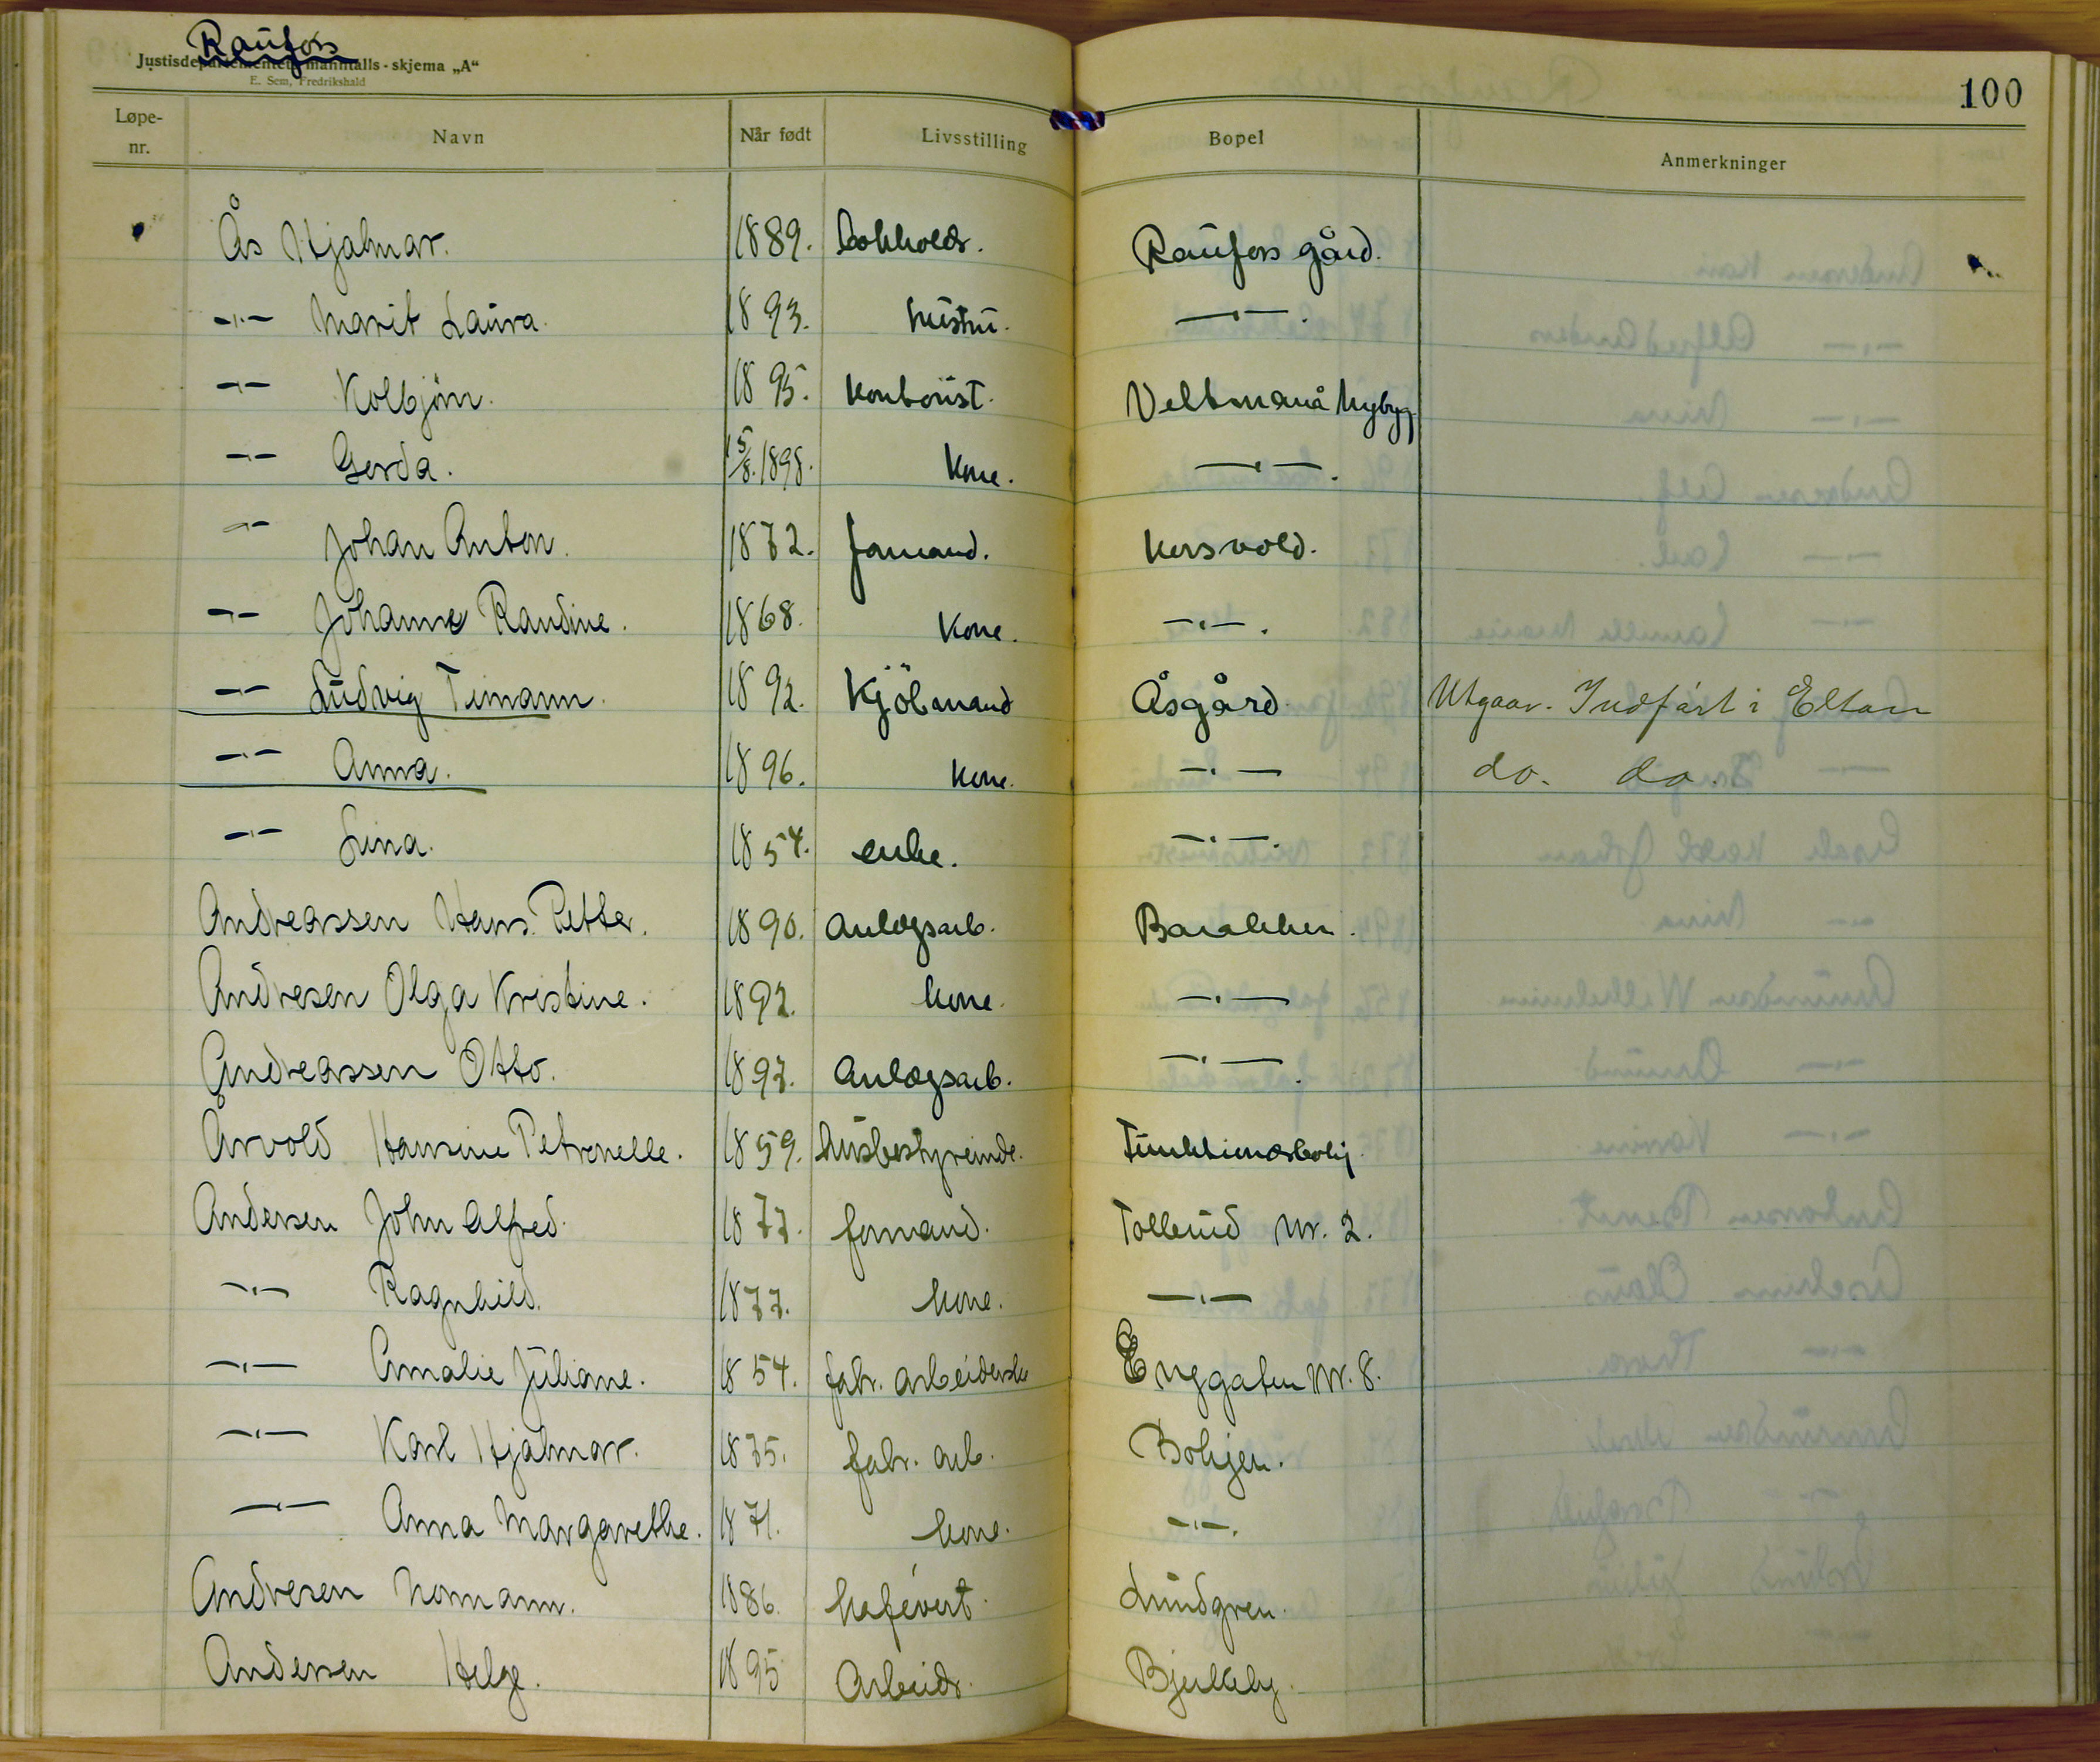 Raufoss
Justisdepartementets manntalls-skjema „A“
E. Sem, Fredrikshald
100
Løpe-nr. Navn Når født Livsstilling Bopel Anmerkninger
Ås Hjalmar. 1889. Bokholdr. Raufoss gård.
-"- Marit Laura. 1893. hustru. -"-.
-"- Kolbjörn. 1895. Kontorist. Veltmanå Nybyg
-"- Gerda. 15/8.1898. Kone. -"-.
-"- Johan Anton. 1872. formand. Korsvold.
-"- Johanne Randine. 1868. Kone. -"-.
-"- Ludvig Timann. 1892. Kjöbmand Åsgård Utgaar. Indført i Eltan
-"- Anna. 1896. Kone. -"- do. do.
-"- Lina. 1854. enke. -"-.
Andreassen Hans Petter. 1890. Anlægsarb. Barakken.
Andresen Olga Kristine. 1892. kone. -"-
Andreassen Otto. 1897. Anlægsarb. -"-.
Årvold Hansine Petronelle. 1859. husbestyreinde. Funktionærbolig.
Andersen John Alfred. 1877. formand. Tollerud Nr. 2.
-"- Ragnhild. 1877. kone. -"-
-"- Amalie Juliane. 1854. fabr. arbeiderske Enggaten Nr. 8.
-"- Karl Hjalmar. 1875. fabr. arb. Boligen.
-"- Anna Margarethe. 1871. kone. -"-.
Andresen Normann. 1886. kafévert. Lundgren.
Andersen Helge. 1895 Arbeidr. Bjerkeby.